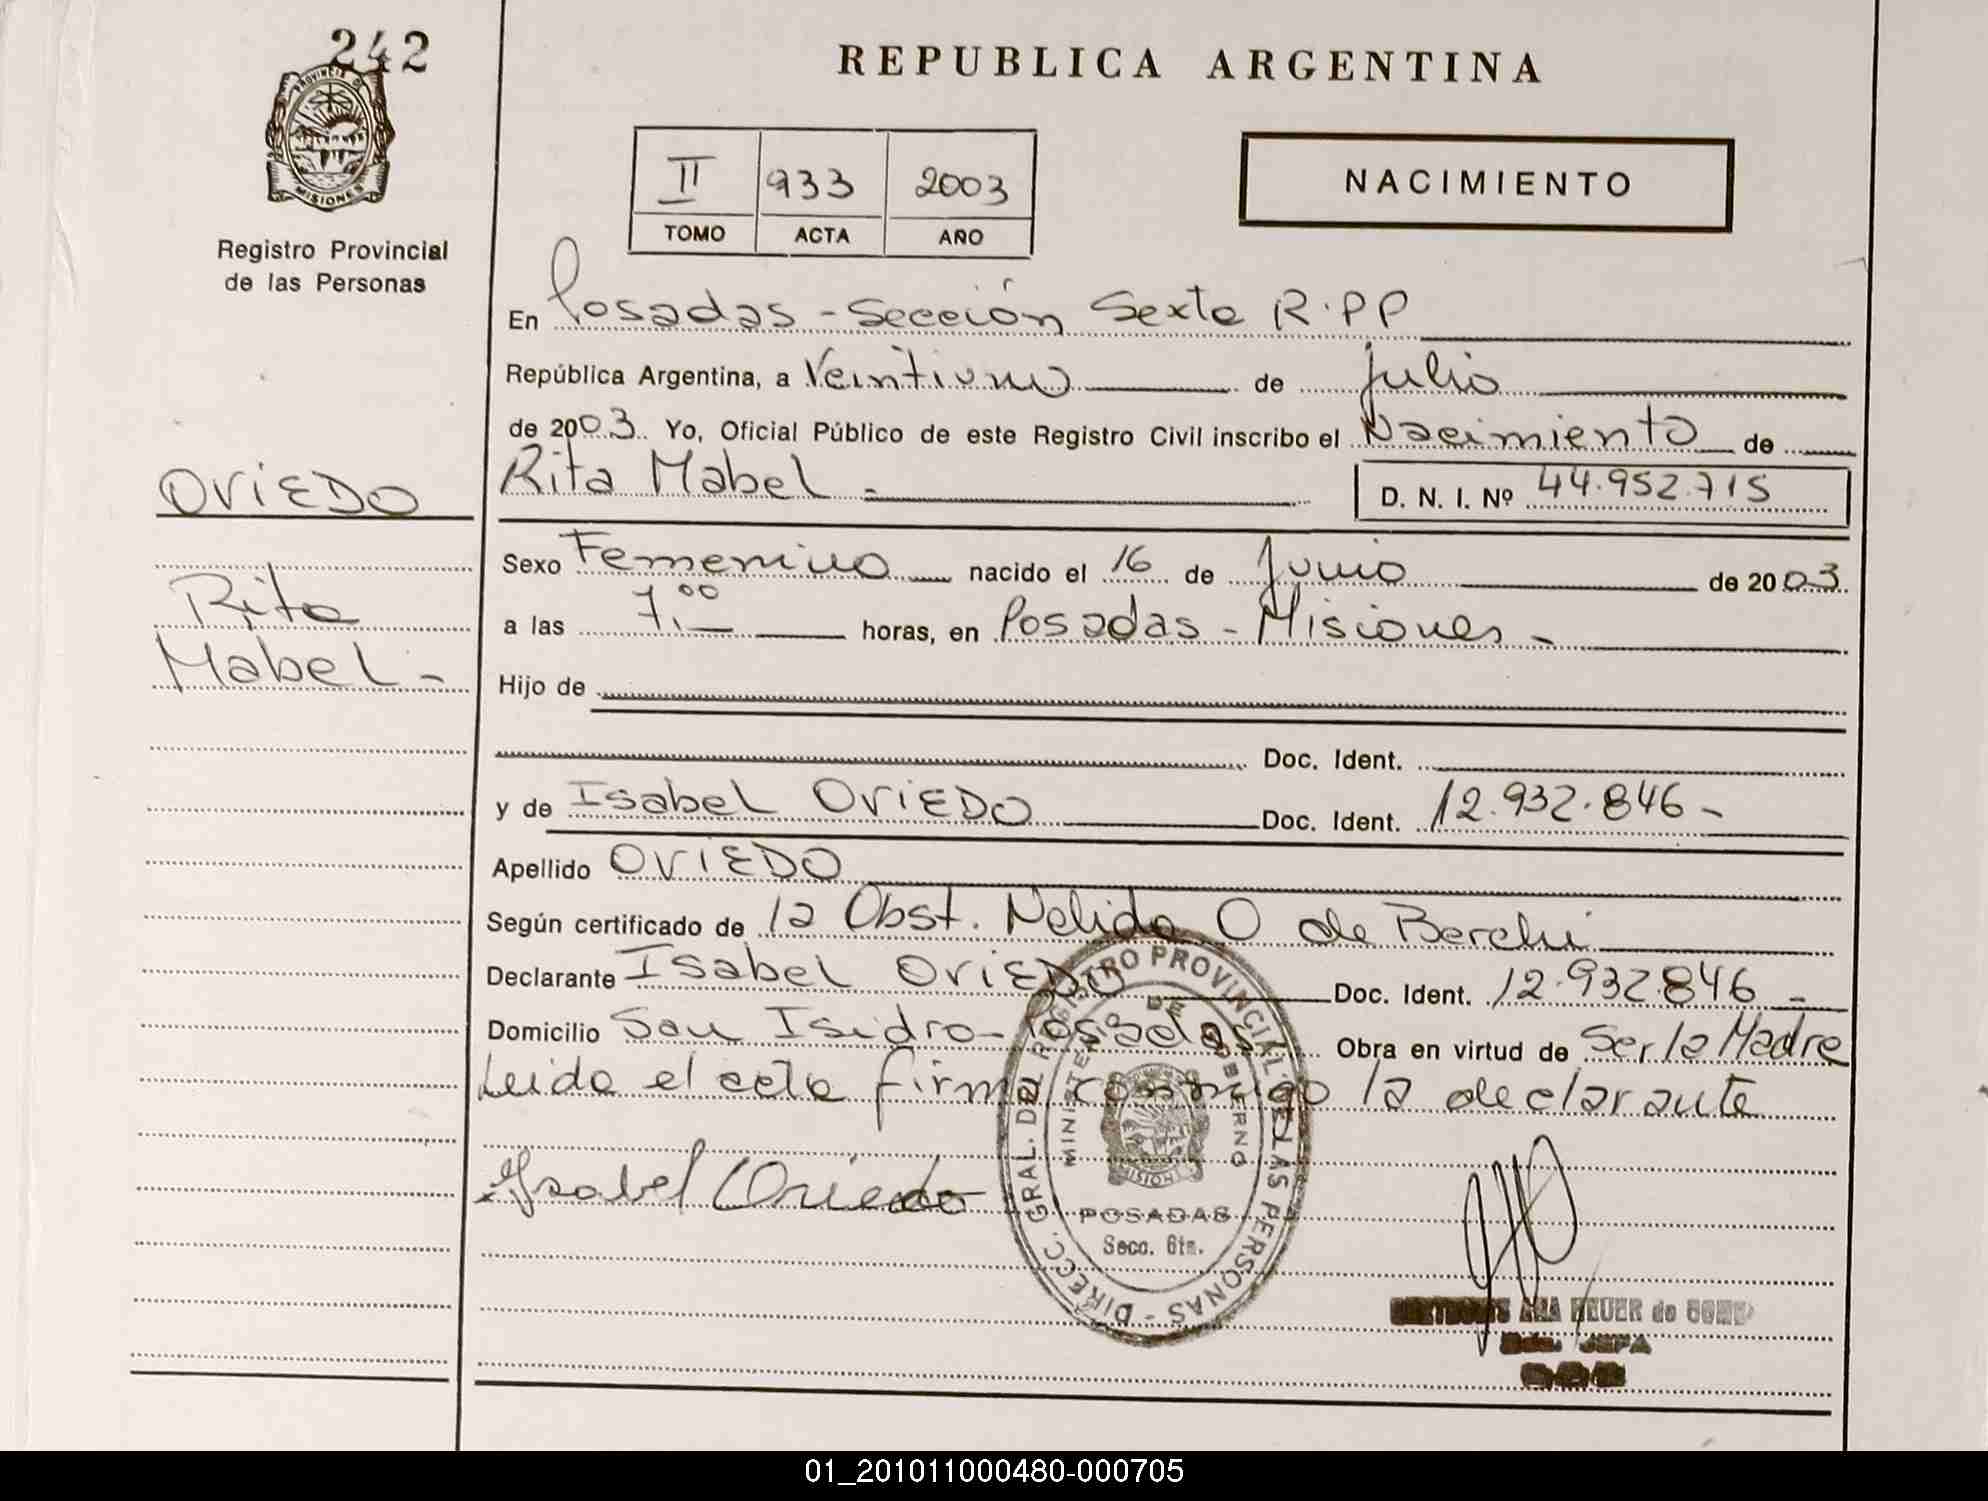 242
PROVINCIA DE
MISIONES
Registro Provincial
de las Personas
REPUBLICA ARGENTINA
II 933 2003
TOMO ACTA AÑO
NACIMIENTO
En Posadas - Sección Sexta R.P.P
República Argentina, a Veintiuno de Julio
de 2003. Yo, Oficial Público de este Registro Civil inscribo el Nacimiento de
Rita Mabel - D. N. I. Nº 44.952.715
OVIEDO
Rita
Mabel -
Sexo Femenino nacido el 16 de Junio de 2003.
a las 7,00 horas, en Posadas - Misiones -
Hijo de
Doc. Ident.
y de Isabel OVIEDO Doc. Ident. 12.932.846 -
Apellido OVIEDO
Según certificado de la Obst. Nelida O de Berchi
Declarante Isabel OVIEDO Doc. Ident. 12.932.846 -
Domicilio San Isidro - Posadas Obra en virtud de Ser la Madre
Leida el acta firma conmigo la declarante
Isabel Oviedo
DIRECC. GRAL. DEL REGISTRO PROVINCIAL DE LAS PERSONAS -
MINISTERIO DE GOBIERNO
MISIONES
POSADAS
Secc. 6ta.
ANA de
JEFA
01_201011000480-000705